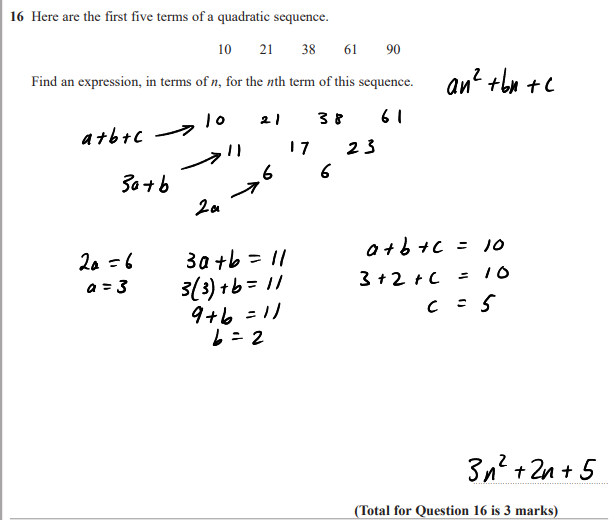 16 Here are the first five terms of a quadratic sequence.
10 21 38 61 90
Find an expression, in terms of n, for the nth term of this sequence.
an² + bn + c
a+b+c → 10 21 38 61
3a+b → 11 17 23
2a → 6 6
2a = 6
a = 3
3a+b = 11
3(3)+b = 11
9+b = 11
b = 2
a+b+c = 10
3+2+c = 10
c = 5
3n² + 2n + 5
(Total for Question 16 is 3 marks)